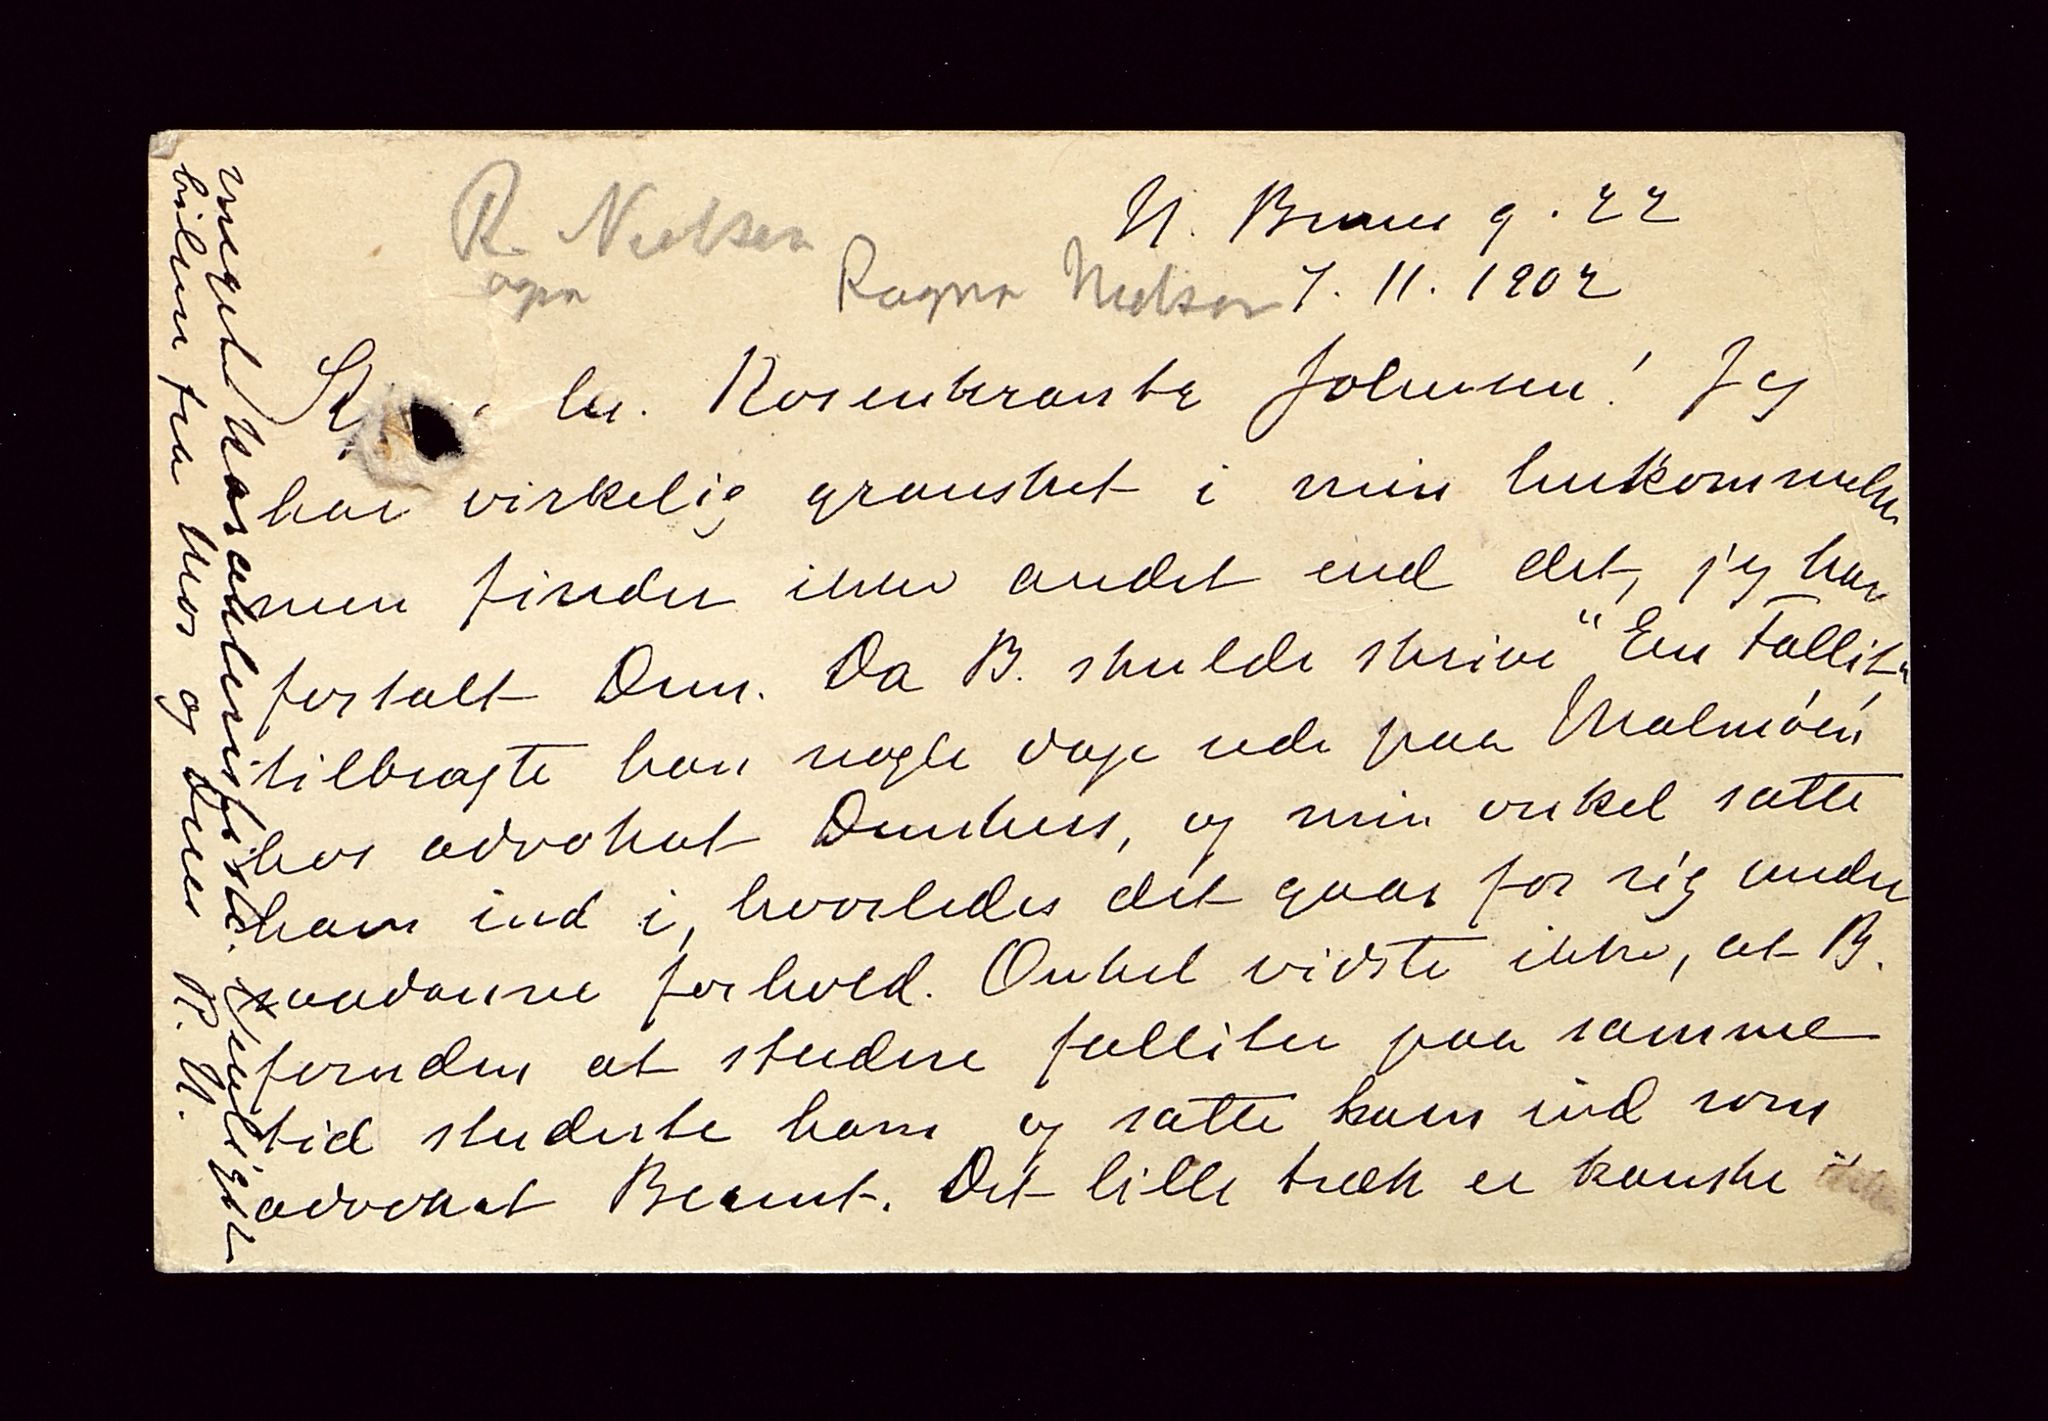 R. Nielsen
agna
Ragna Nielsen
N. Brun g. 22
7. 11. 1902
hr. Rosenkrantz Johnsen! Jeg
har virkelig gransket i min hukommelse
men finder ikke andet end det, jeg har
fortalt Dem. Da B. skulde skrive "En Fallit"
tilbragte han nogle dage ude paa Malmøen
hos advokat Dunker, og min onkel satte
ham ind i, hvorledes det gaar for sig under
saadanne forhold. Onkel vidste ikke, at B.
foruden at studere falliter paa samme
tid studerte ham og satte ham ind som
advokat Berent. Det lille træk er kanske ikke
meget karakteristisk. Venligste
hilsen fra Mor og Deres R. N.